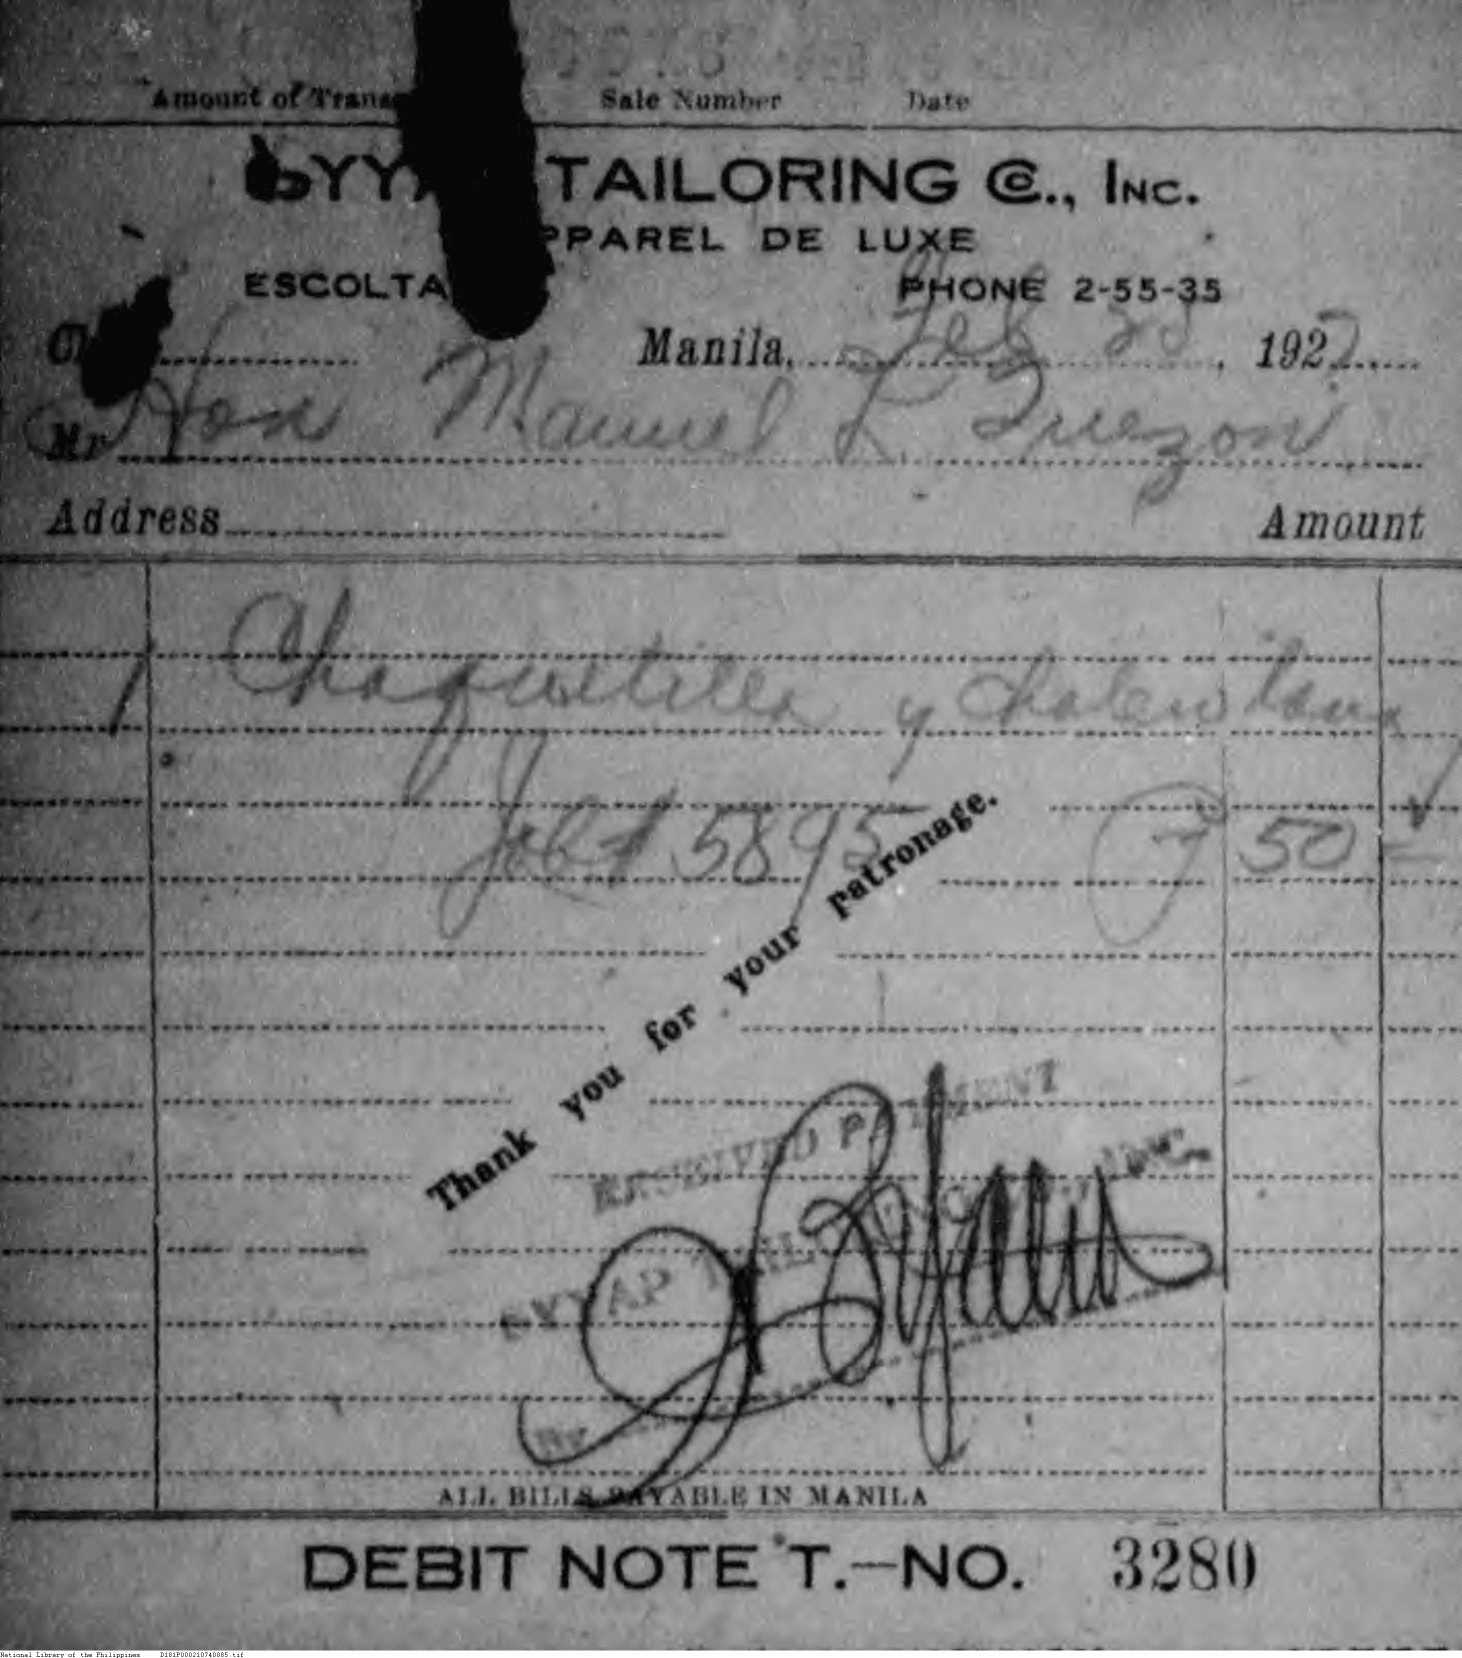 Amount of Trans
Sale Number
Date
TAILORING Co., INC.
APPAREL DE LUXE
ESCOLTA
PHONE 2-55-35
Manila, Feb 28, 1927
Mr Hon Manuel L Quezon
Address
Amount
1 Chaquetilla y
Job # 5895 P 50 -
Thank you for your patronage.
RECEIVED PAYMENT
GYYAP TAILORING CO., INC.
By
ALL BILLS PAYABLE IN MANILA
DEBIT NOTE T.—NO. 3280
National Library of the Philippines D181P000210740085.tif